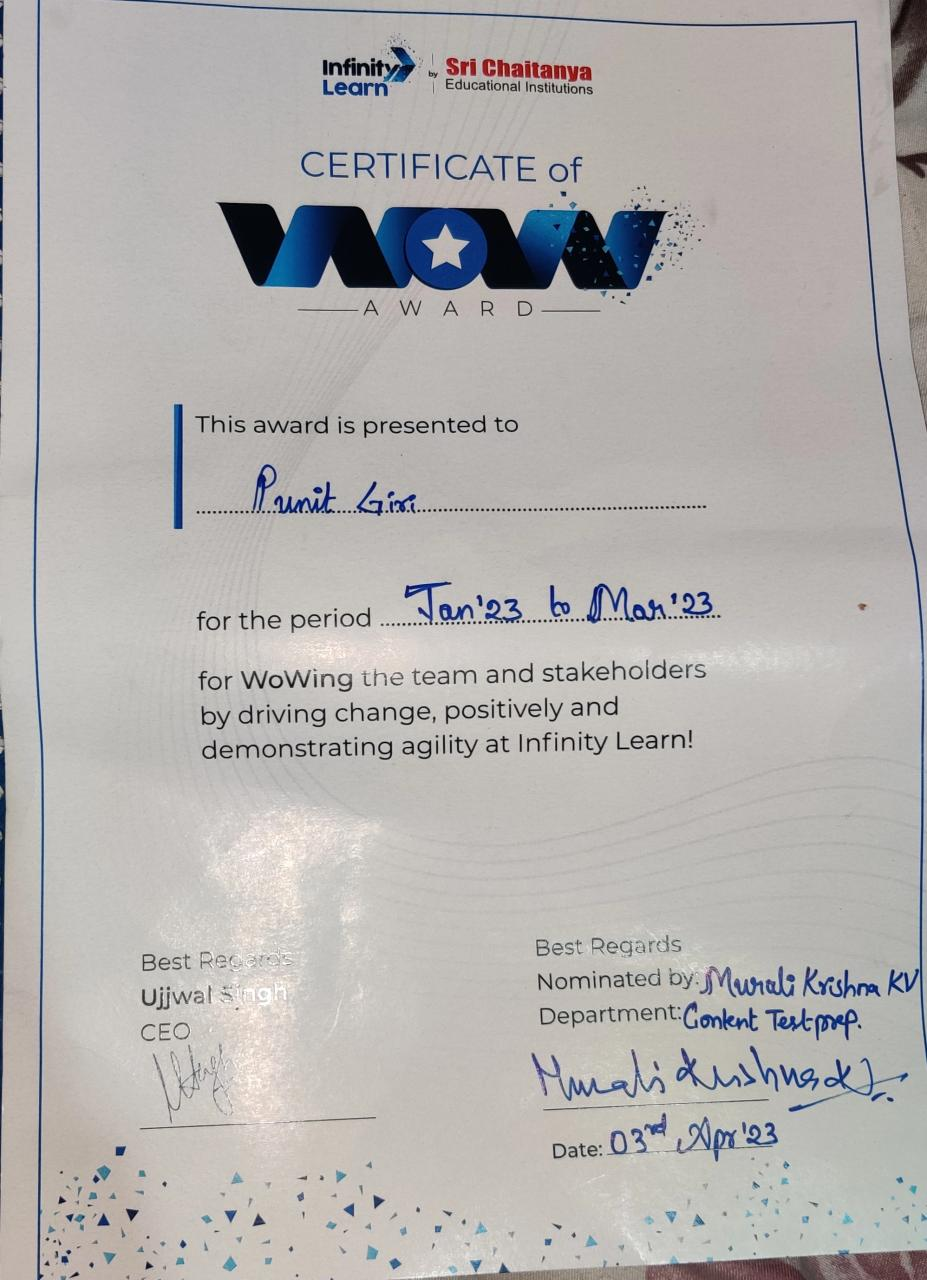 Infinity Learn by Sri Chaitanya Educational Institutions
CERTIFICATE of
WOW
AWARD
This award is presented to
Punit Giri
for the period Jan'23 to Mar'23
for WoWing the team and stakeholders
by driving change, positively and
demonstrating agility at Infinity Learn!
Best Regards
Ujjwal Singh
CEO
Best Regards
Nominated by: Murali Krishna KV
Department: Content Testprep.
Murali Krishna KV
Date: 03rd Apr'23